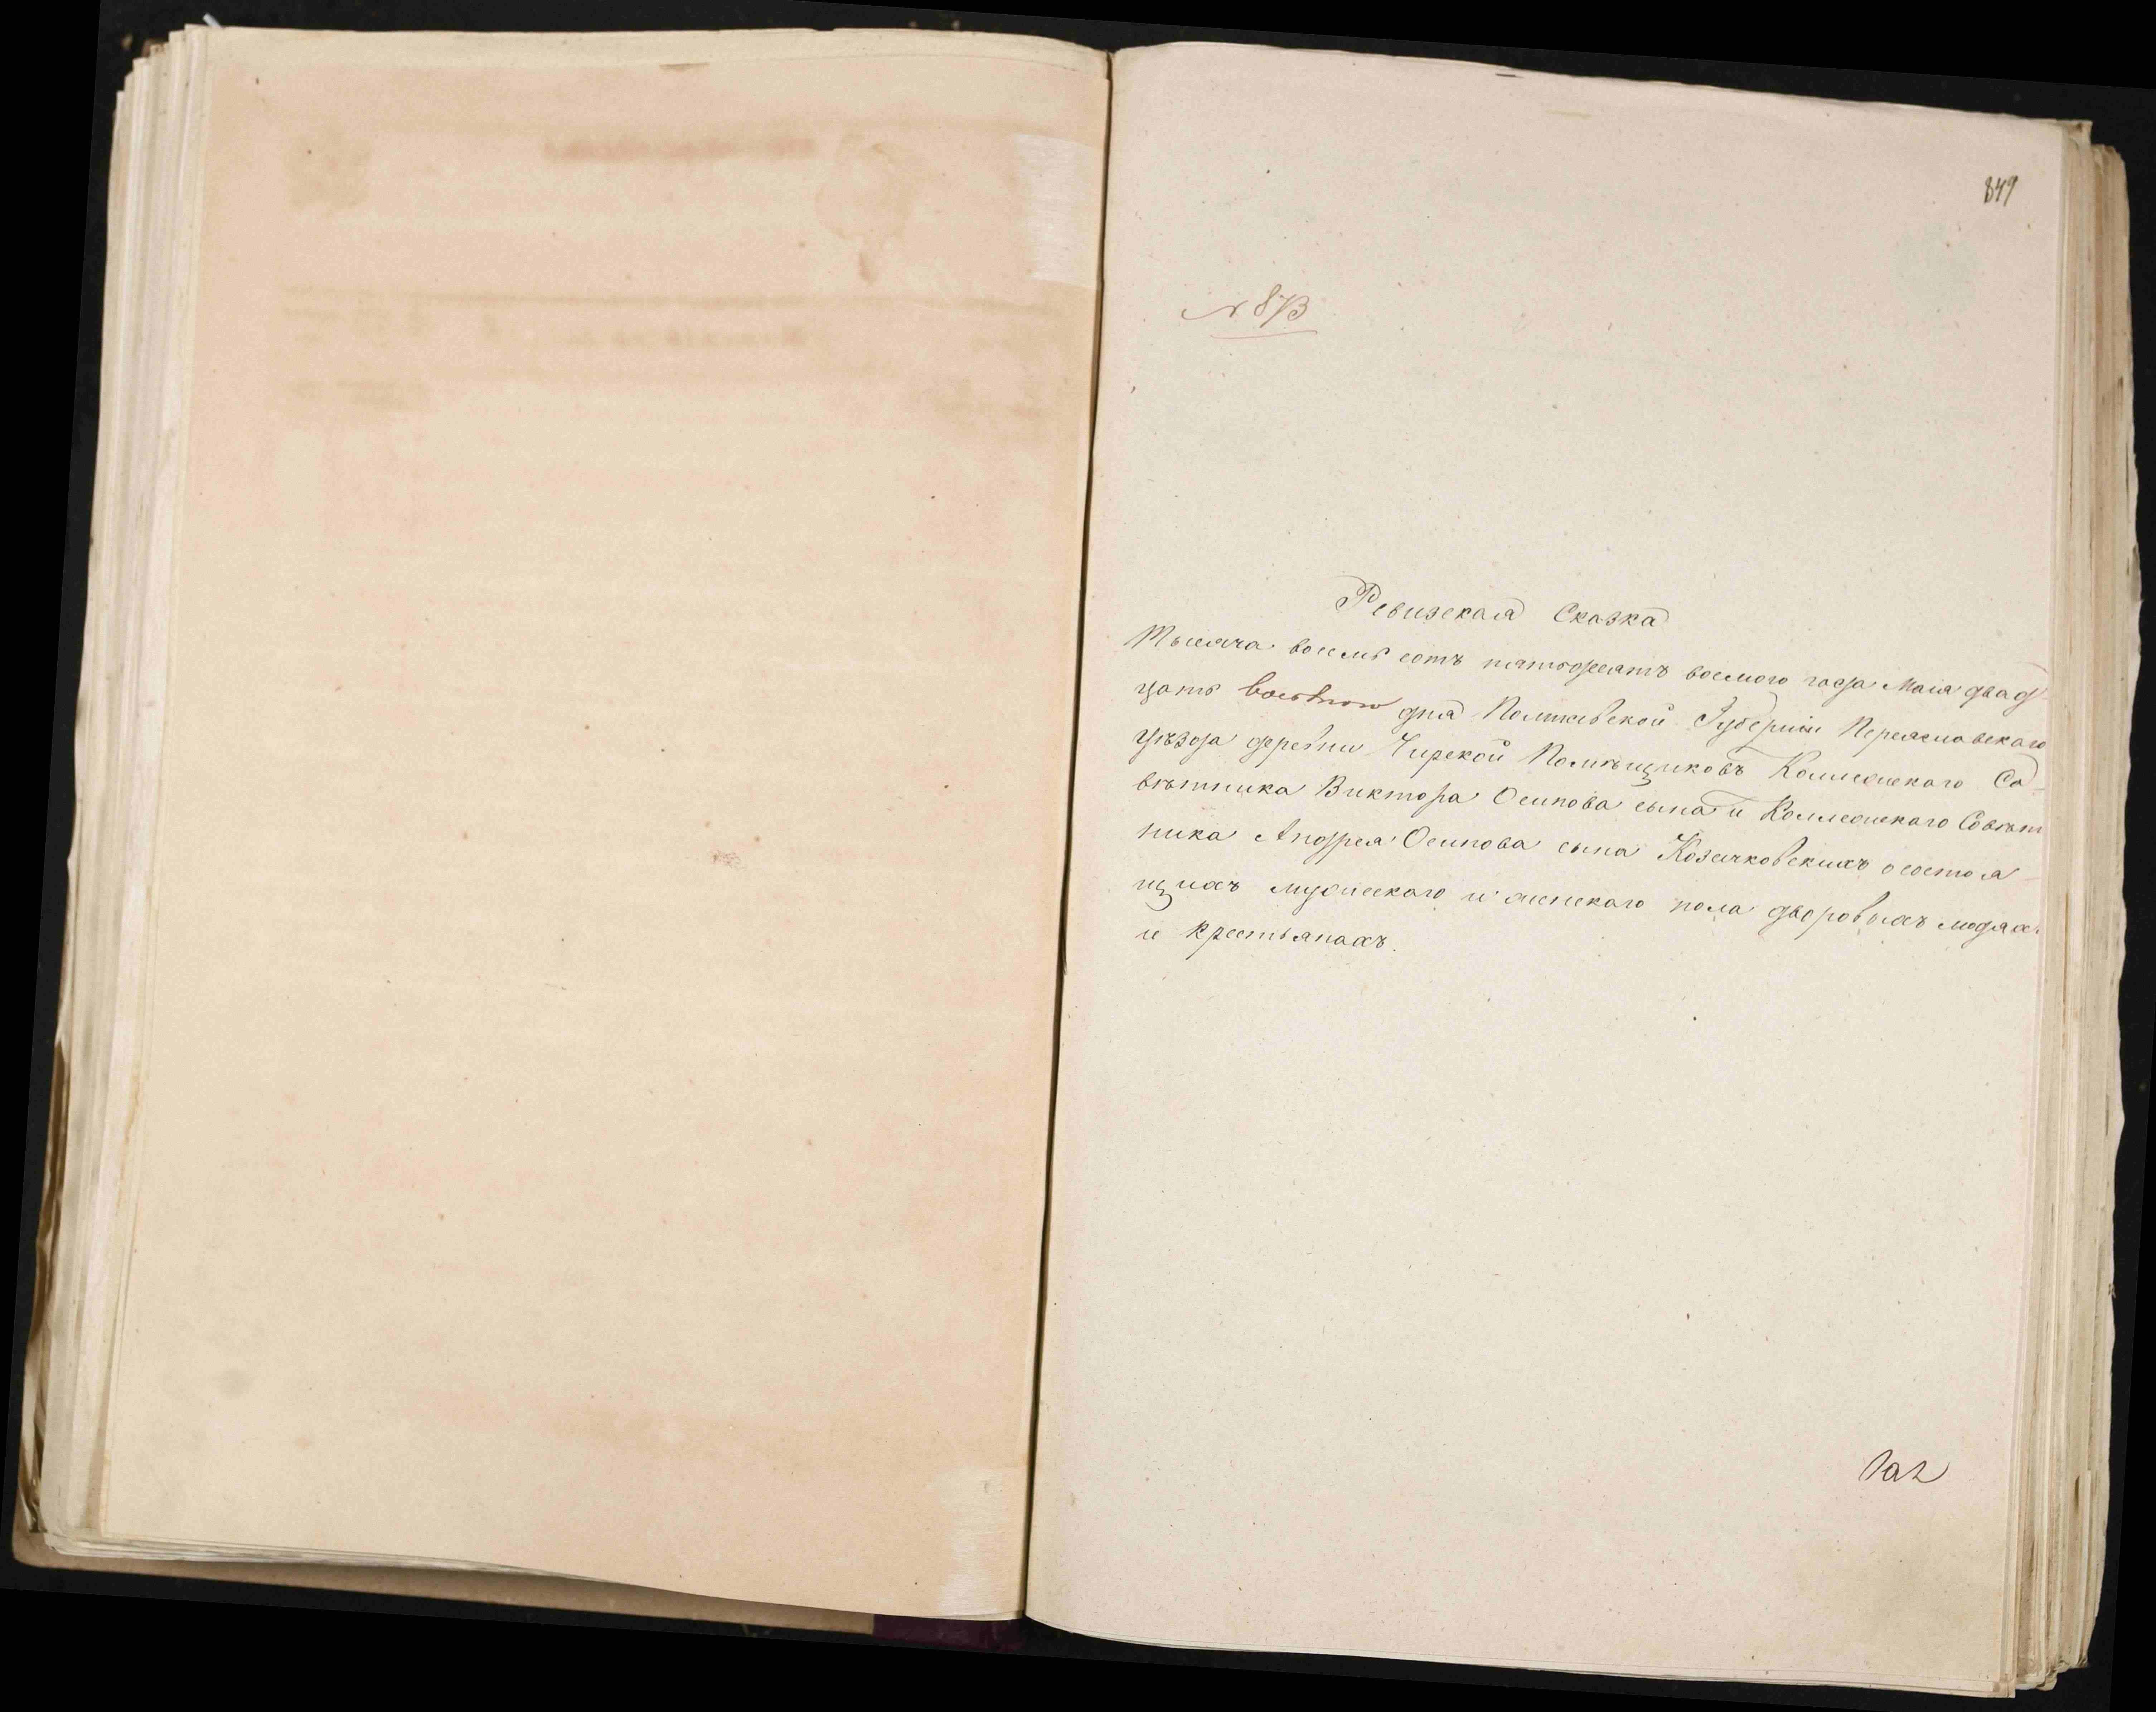 849
N 873
Ревизская Сказка
Тысяча восемь сотъ пятьдесятъ восмого года Маія двад
цать восьмого дня Полтавской Губерніи Переяславскаго
уѣзда деревни Чирской Помѣщиковъ Коллежскаго Со-
вѣтника Виктора Осипова сына и Коллежскаго Совѣт
ника Андрея Осипова сына Козачковскихъ о состоя-
щихъ мужескаго и женскаго пола дворовыхъ людяхъ
и крестьянахъ.